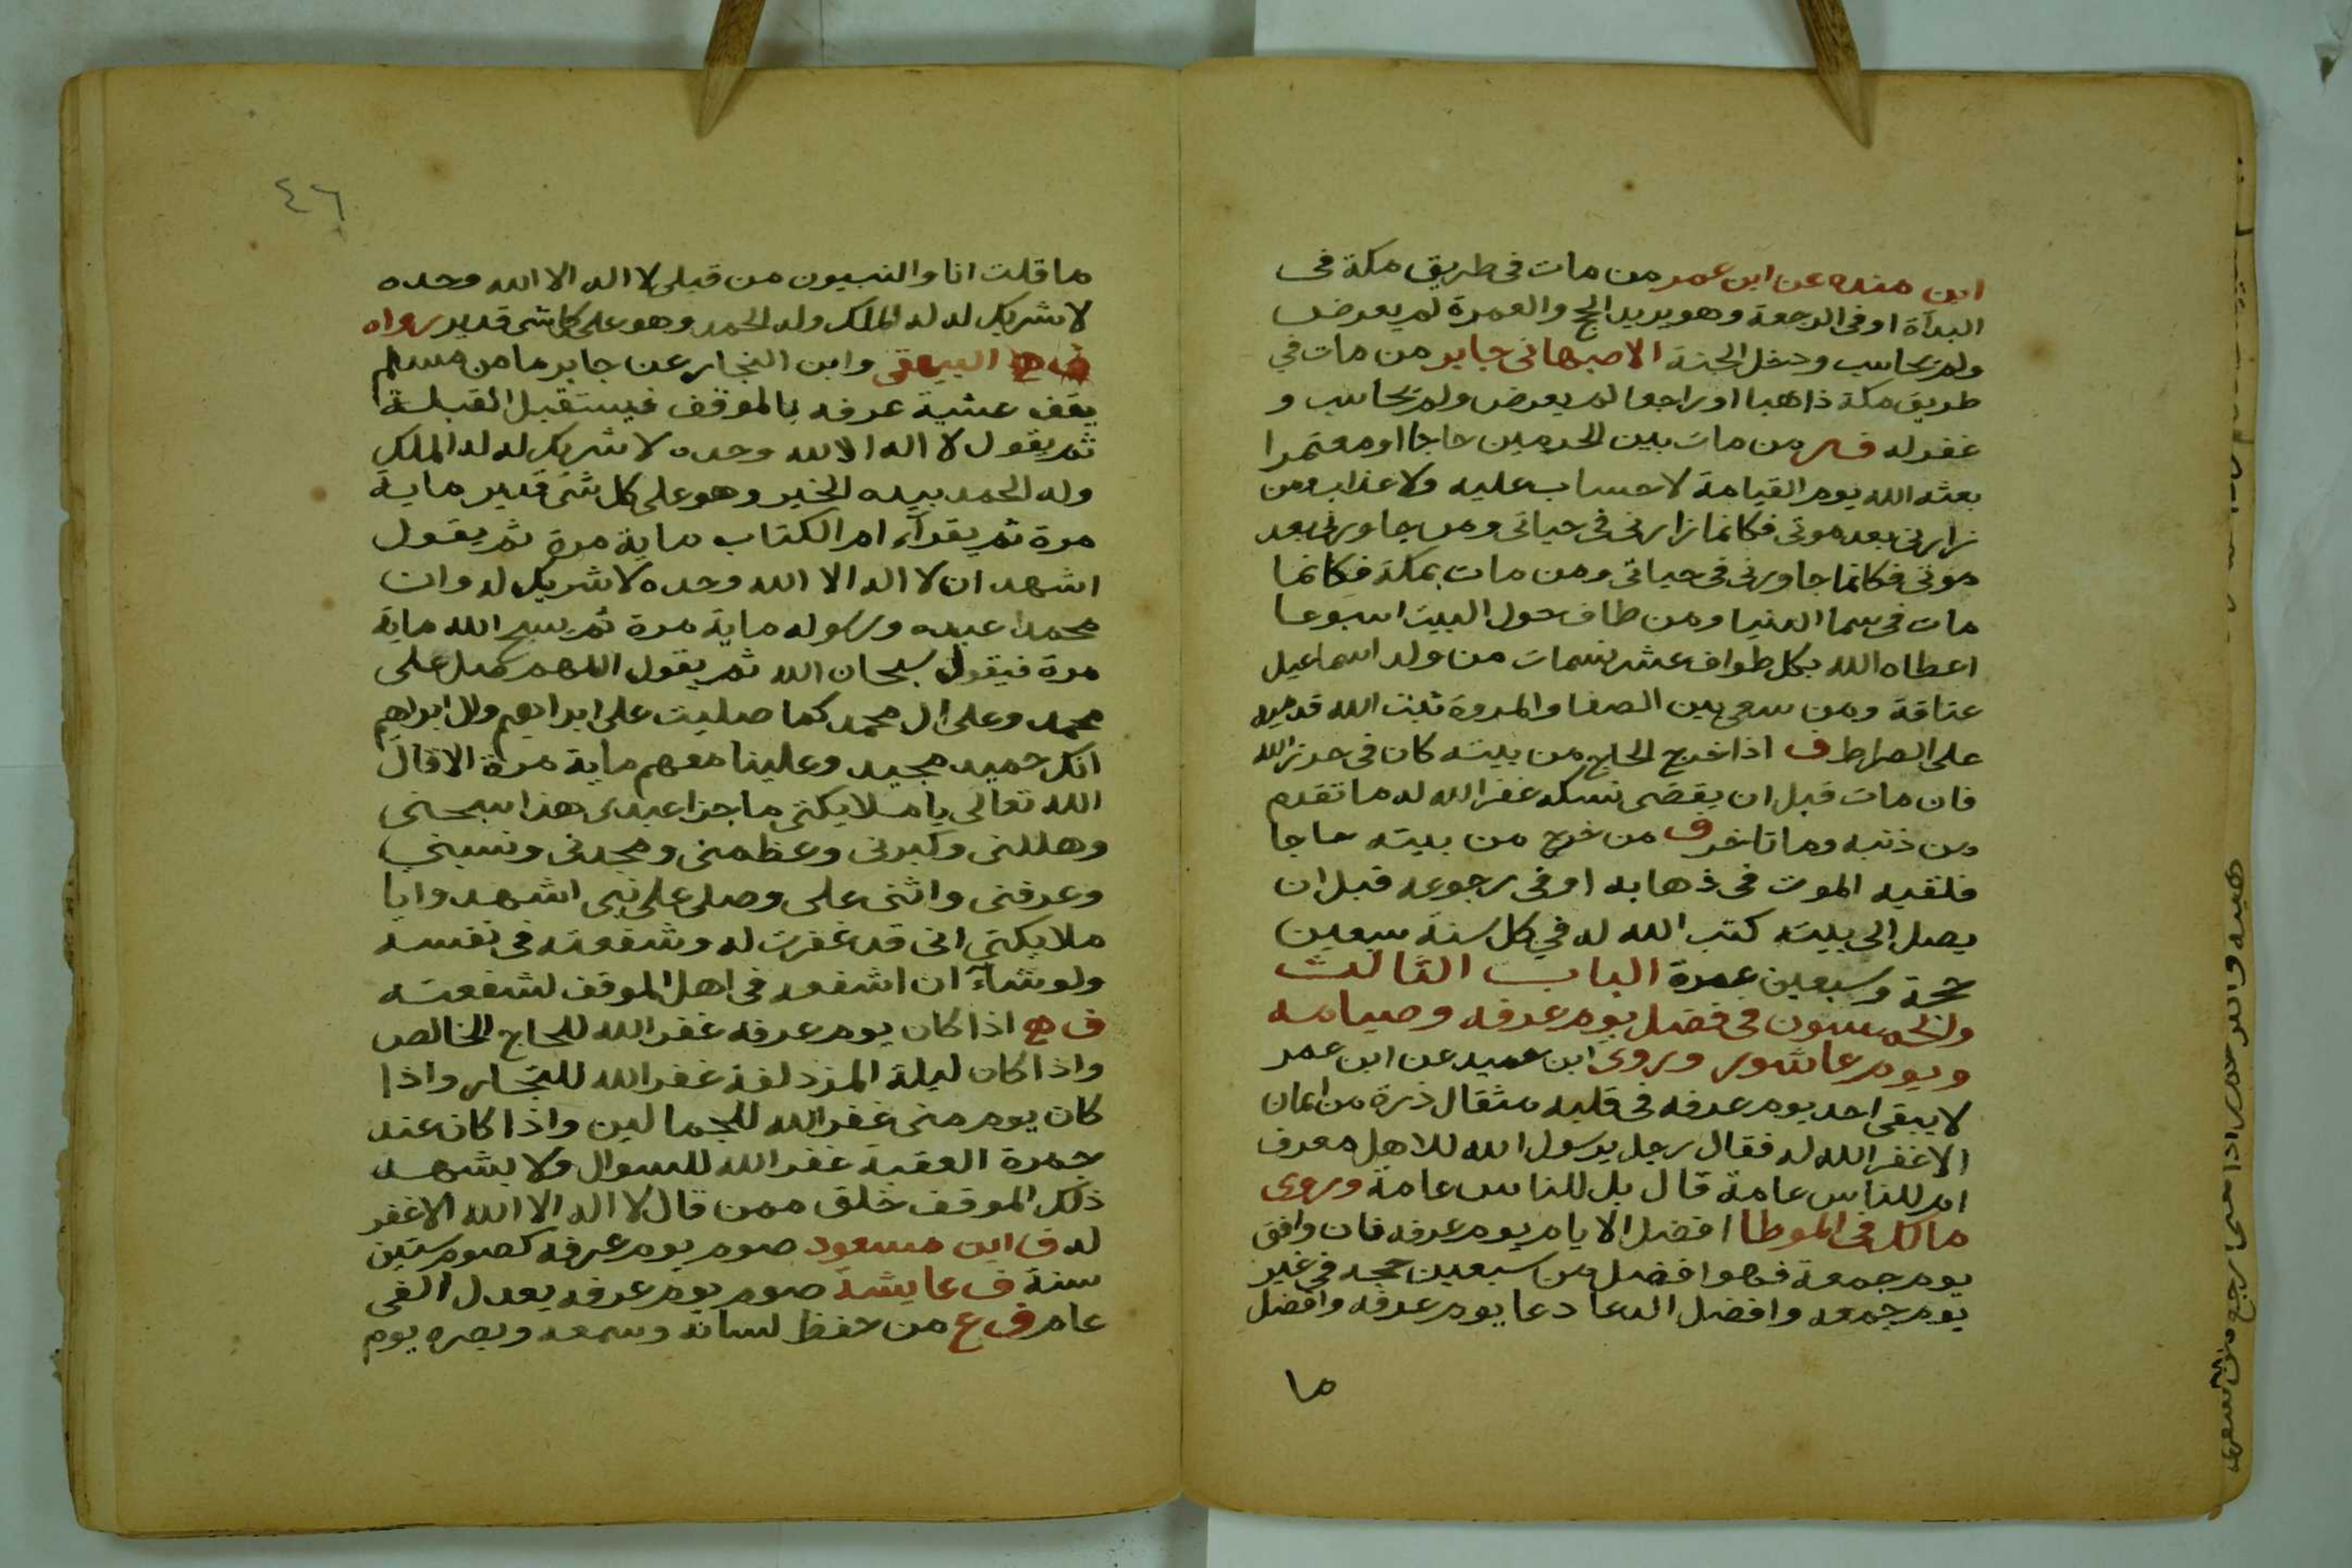 ابن منده عن ابن عمر من مات فى طريق مكة فى
البدأة او فى الرجعة وهو يريد الحج والعمرة لم يعرض
ولم يحاسب ودخل الجنة الاصبهانى جابر من مات في
طريق مكة ذاهبا او راجعا لم يعرض ولم يحاسب و
غفر له فر من مات بين الحرمين حاجا او معتمرا
بعثه الله يوم القيامة لا حساب عليه ولا عذاب ومن
زارنى بعد موتى فكانما زارنى فى حياتى ومن جاورنى بعد
موتى فكانما جاورنى فى حياتى ومن مات بمكة فكانما
مات فى سما الدنيا ومن طاف حول البيت اسبوعا
اعطاه الله بكل طواف عشر نسمات من ولد اسماعيل
عتاقة ومن سعى بين الصفا والمروة ثبت الله قدميه
على الصراط ف اذا خرج الحاج من بيته كان فى حرز الله
فان مات قبل ان يقضى نسكه غفر الله له ما تقدم
من ذنبه وما تاخر ف من خرج من بيته حاجا
فلقيه الموت فى ذهابه او فى رجوعه قبل ان
يصل الى بيته كتب الله له في كل سنة سبعين
حجة وسبعين عمرة الباب الثالث
والخمسون فى فضل يوم عرفه وصيامه
ويوم عاشور وروى ابن عميد عن ابن عمر
لا يبقى احد يوم عرفه فى قلبه مثقال ذرة من ايمان
الا غفر الله له فقال رجل يرسول الله للاهل معرف
ام للناس عامة قال بل للناس عامة وروى
مالك فى الموطا افضل الايام يوم عرفه فان وافق
يوم جمعة فهو افضل من سبعين حجه فى غير
يوم جمعه وافضل الدعا دعا يوم عرفه وافضل
ما
٤٦
ما قلت انا والنبيون من قبلى لا اله الا الله وحده
لا شريك له له الملك وله الحمد وهو على كل شى قدير رواه
البيهقى وابن النجار عن جابر ما من مسلم
يقف عشية عرفه بالموقف فيستقبل القبلة
ثم يقول لا اله الا الله وحده لا شريك له له الملك
وله الحمد بيده الخير وهو على كل شئ قدير ماية
مرة ثم يقرأ ام الكتاب ماية مرة ثم يقول
اشهد ان لا اله الا الله وحده لا شريك له وان
محمدا عبده ورسوله ماية مرة ثم يسبح الله ماية
مرة فيقول سبحان الله ثم يقول اللهم صل على
محمد وعلى ال محمد كما صليت على ابراهيم وال ابراهيم
انك حميد مجيد وعلينا معهم ماية مرة الا قال
الله تعالى يا ملايكتى ما جزا عبدى هذا سبحنى
وهللنى وكبرنى وعظمنى ومجدنى ونسبنى
وعرفنى واثنى على وصلى على نبى اشهدوا يا
ملايكتي انى قد غفرت له وشفعته فى نفسه
ولو شاء ان اشفعه فى اهل الموقف لشفعته
ف هج اذا كان يوم عرفه غفر الله للحاج الخالص
واذا كان ليلة المزدلفة غفر الله للتجار واذا
كان يوم منى غفر الله للجمالين واذا كان عند
جمرة العقبة غفر الله للسوال ولا يشهد
ذلك الموقف خلق ممن قال لا اله الا الله الا غفر
له ف ابن مسعود صوم يوم عرفه كصوم ستين
سنة ف عايشة صوم يوم عرفه يعدل الفى
عام ف ع من حفظ لسانه وسمعه وبصره يوم